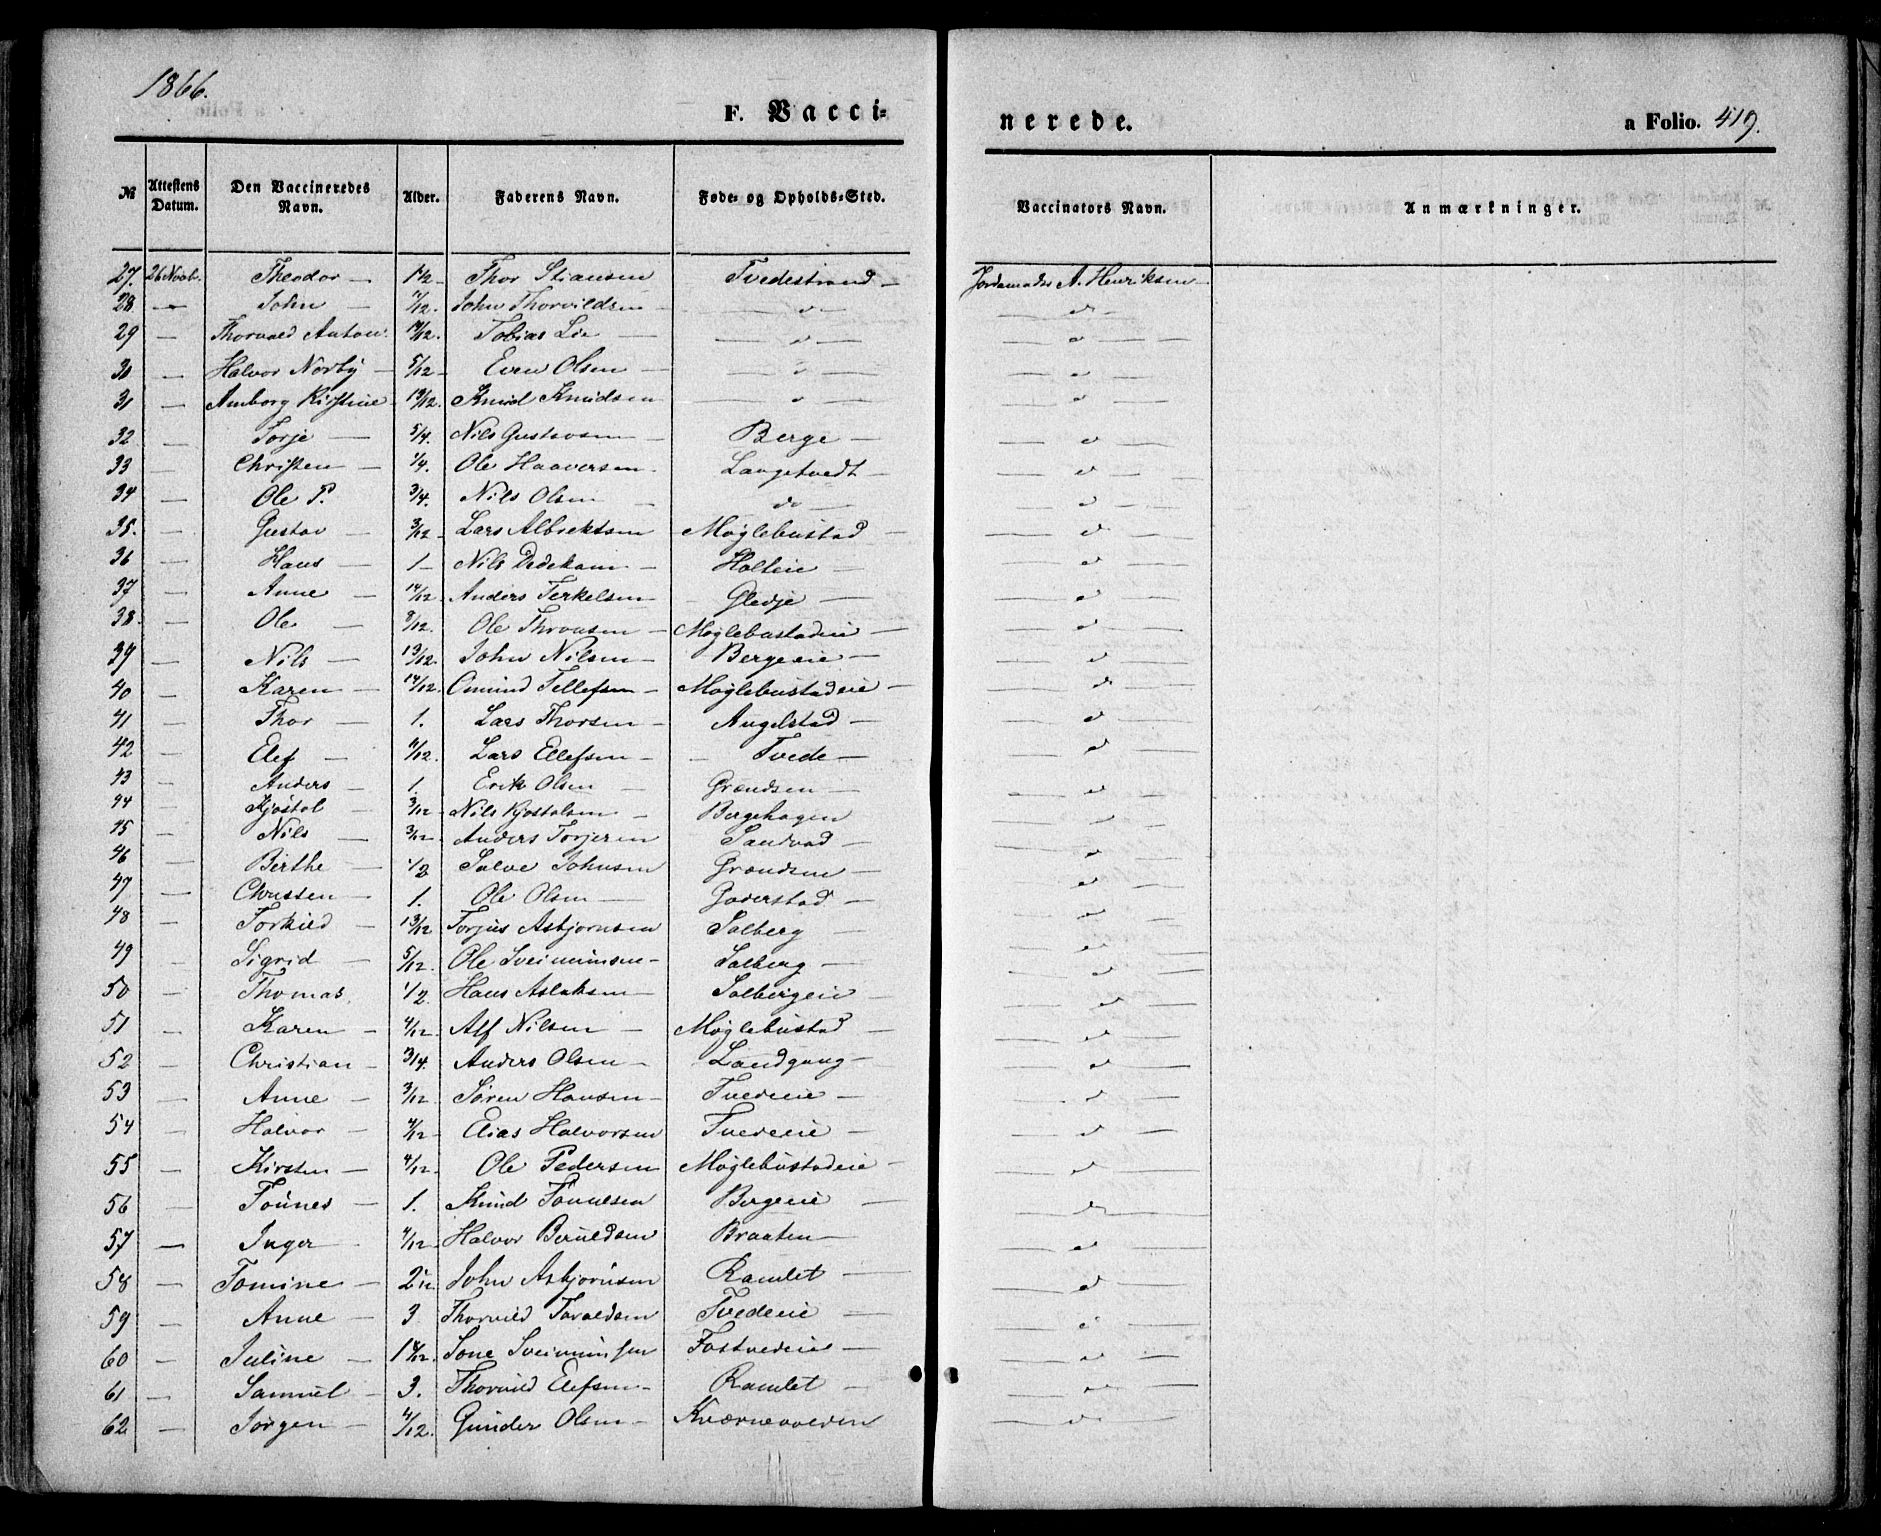 1866.
F. Vacci-
nerede.
a Folio. 419.
№ Attestens Datum. Den Vaccineredes Navn. Alder. Faderens Navn. Føde- og Opholds-Sted. Vaccinators Navn. Anmærkninger.
27. 26 Novbr. Theodor — 1/2 Thor Stiansen Tvedestrand — Jordemoder A. Henriksen
28 — John — John Thorvildsen — do — do —
29 — Thorvald Anton. 14/12. Tobias Lie — do — do —
30 — Halvor Norby — 5/12 — Even Olsen — do — do —
31 — Amborg Kirstine 13/12. Knud Knudsen — do — do —
32 — Torje — 5/4. Nils Gustavsen — Berge — do —
33 — Christen — 1/4. Ole Haaversen Langetvedt — do —
34 — Ole P. 3/4. Nils Olsen — do — do —
35. — Gustav 3/12 — Lars Albrektsen Moglebustad — do —
36 — Hans — 1 — Nils Dedekam — Holteie — do —
37 — Anne — 14/12 Anders Terkelsen — Gledje — do —
38. — Ole — 8/12. Ole Throndsen — Moglebustadeie — do —
39 — Nils — 13/12. John Nilsen — Bergeeie — do —
40 — Karen — 14/12. Omund Tellefsen — Moglebustadeie — do —
41 — Thor — 1. Lars Thorsen — Angelstad — do —
42 — Elef — Lars Ellefsen — Tvede — do —
43 — Anders — 1. Erik Olsen — Grændsen — do —
44 — Kjøstol — 3/12 Nils Kjøstolsen — Bergehagen — do —
45 — Nils — 3/12 Anders Torjersen Sandvad — do —
46 — Birthe — 1/2 Salve Johnsen Grændsen — do —
47 — Christen — 1. Ole Olsen — Goderstad — do —
48 — Torkild — 13/12 Torjus Asbjornsen Solberg — do —
49 — Sigrid — 5/12. Ole Sveinunsen — Solberg — do —
50 — Thomas. 1/2 Hans Aslaksen — Solbergeie — do —
51 — Karen — 4/12 Alf Nilsen — Moglebustad — do —
52 — Christian — 3/4. Anders Olsen — Landgang — do —
53 — Anne — 3/12 Søren Hansen — Tvedeeie — do —
54 — Halvor — 4/12 Elias Halvorsen Tvedeeie — do —
55 — Kirsten — 4/12 Ole Pedersen Moglebustadeie — do —
56 — Tønnes — 1. Knud Tønnesen Bergeeie — do —
57 — Inger 4/12 Halvor Beruldsen Braaten — do —
58 — Tomine — John Asbjørnsen Ramlet — do —
59 — Anne — 3 Thorvild Taraldsen Tvedeeie — do —
60 — Juline — Sone Sveinunsen Fostvedeie — do —
61 — Samuel — 3. Thorvild Elefsen — Ramlet — do —
62 — Jørgen — 4/12. Gunder Olsen — Kværnevolden do —